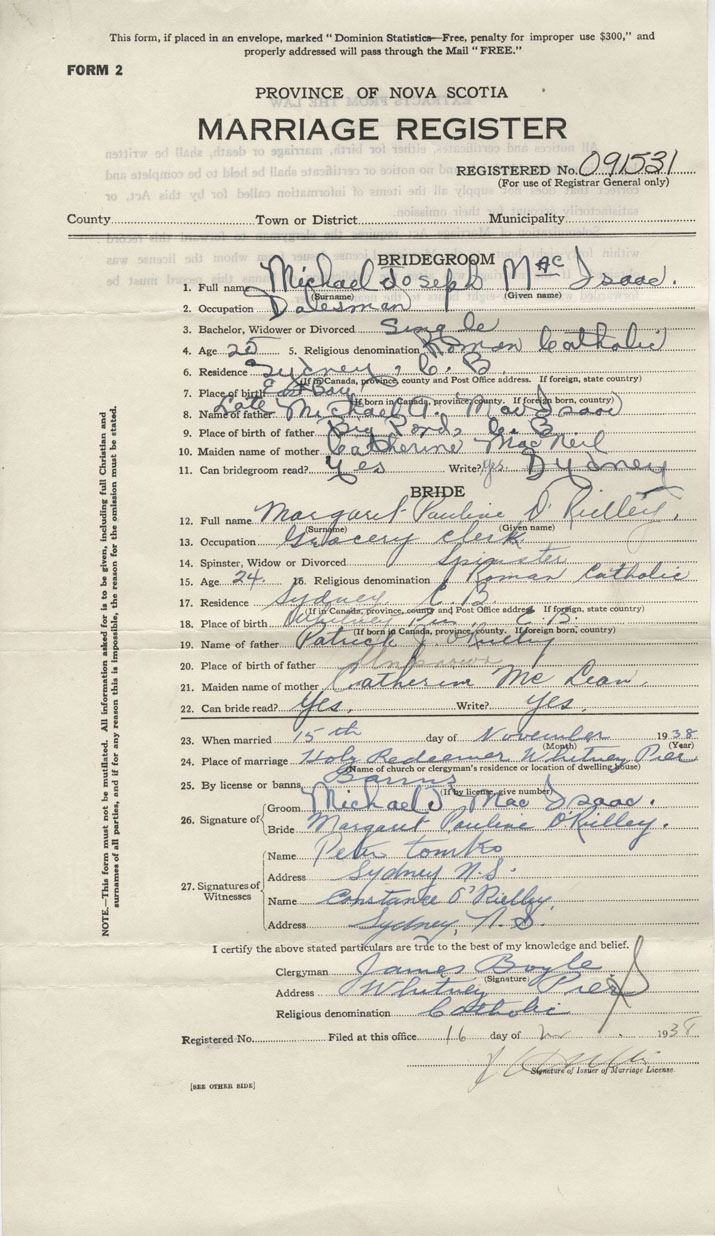 This form, if placed in an envelope, marked "Dominion Statistics—Free, penalty for improper use $300," and
properly addressed will pass through the Mail "FREE."
FORM 2
PROVINCE OF NOVA SCOTIA
MARRIAGE REGISTER
REGISTERED No. 091531
(For use of Registrar General only)
County Town or District Municipality
BRIDEGROOM
1. Full name Michael Joseph MacIsaac.
(Surname) (Given name)
2. Occupation
3. Bachelor, Widower or Divorced Single
4. Age 25 5. Religious denomination Roman Catholic
6. Residence Sydney, C. B.
(If in Canada, province, county and Post Office address. If foreign, state country)
7. Place of birth East Bay
(If born in Canada, province, county. If foreign born, country)
8. Name of father Late Michael A. MacIsaac
9. Place of birth of father Big Pond, C. B.
10. Maiden name of mother Catherine MacNeil
11. Can bridegroom read? Yes Write? Yes. Sydney
BRIDE
12. Full name Margaret Pauline O'Rielley.
(Surname) (Given name)
13. Occupation Grocery clerk
14. Spinster, Widow or Divorced Spinster
15. Age 24. 16. Religious denomination Roman Catholic
17. Residence Sydney C. B.
(If in Canada, province, county and Post Office address. If foreign, state country)
18. Place of birth Whitney Pier C. B.
(If born in Canada, province, county. If foreign born, country)
19. Name of father Patrick J. O'Rielly
20. Place of birth of father Unknown
21. Maiden name of mother Catherine McLean.
22. Can bride read? Yes. Write? Yes.
23. When married 15th day of November 1938
(Month) (Year)
24. Place of marriage Holy Redeemer Whitney Pier
(Name of church or clergyman's residence or location of dwelling house)
25. By license or banns Banns
(If by license, give number)
26. Signature of
Groom Michael J MacIsaac.
Bride Margaret Pauline O'Rielley.
27. Signatures of Witnesses
Name Peter Tombs
Address Sydney N.S.
Name Constance O'Rielley
Address Sydney, N. S.
I certify the above stated particulars are true to the best of my knowledge and belief.
Clergyman James Boyle
(Signature)
Address Whitney Pier
Religious denomination Catholic
Registered No. Filed at this office 16 day of 1938
Signature of Issuer of Marriage License.
[SEE OTHER SIDE]
NOTE.—This form must not be mutilated. All information asked for is to be given, including full Christian and
surnames of all parties, and if for any reason this is impossible, the reason for the omission must be stated.